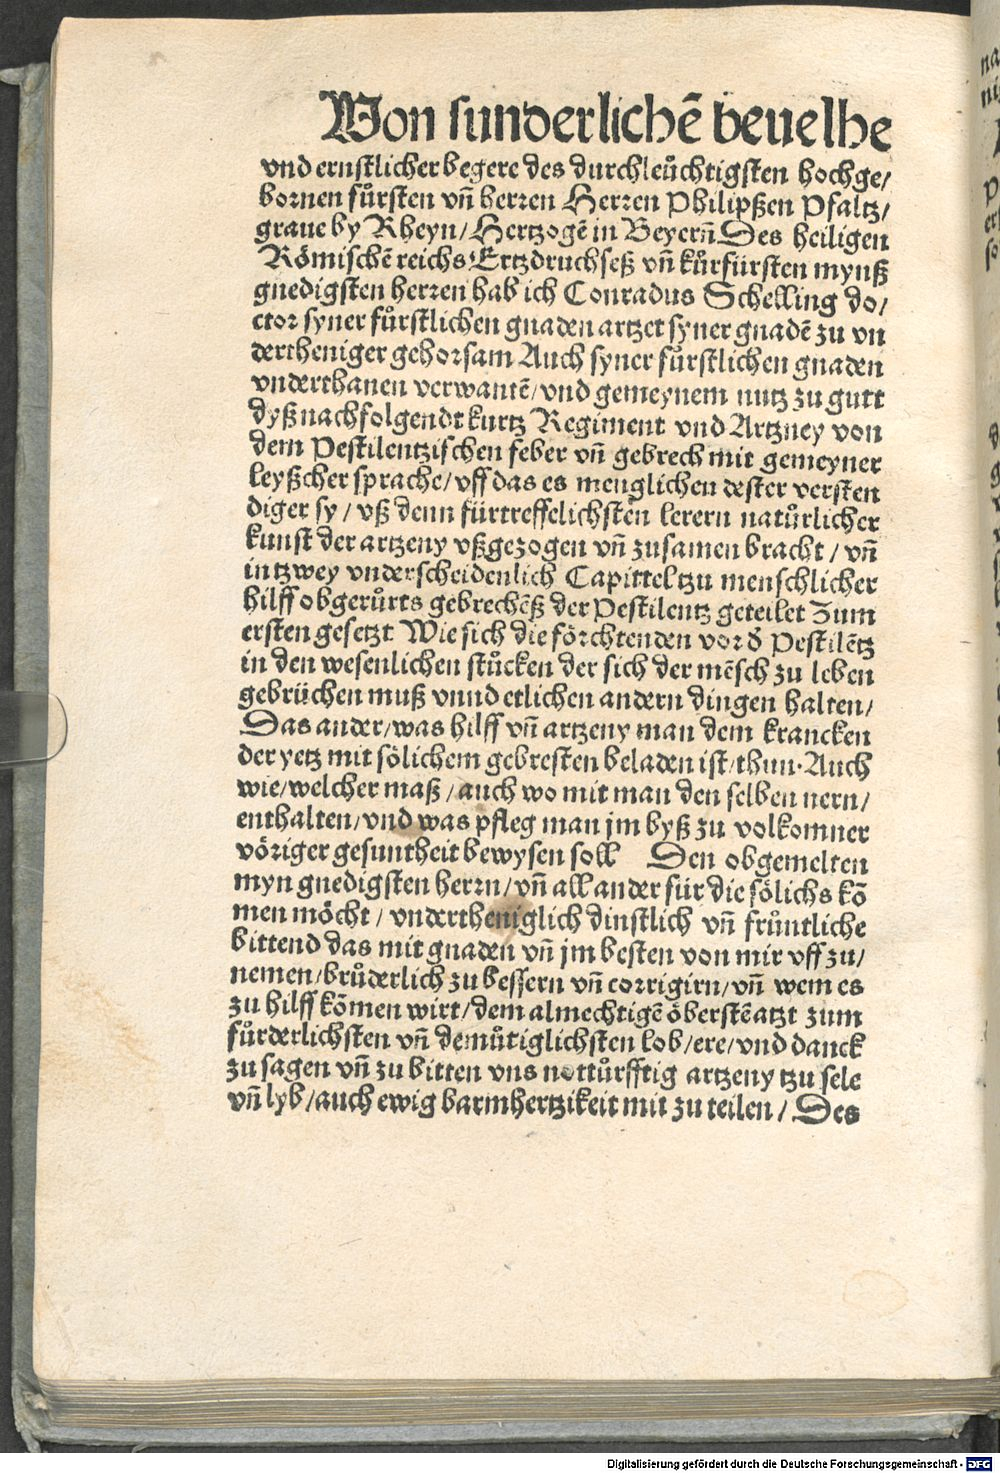 Von sunderlichē beuelhe
vnd ernstlicher begere des durchleu̇chtigsten hochge/
bornen fůrsten vn̄ herren Herren Philipßen Pfaltz/
graue by Rheyn/ Hertzogē in Beyern̄ Des heiligen
Römischē reichs Ertzdruchseß vn̄ kůrfürsten mynß
gnedigsten herren hab ich Conradus Schelling do/
ctor syner fůrstlichen gnaden artzet syner gnadē zu vn
dertheniger gehorsam Auch syner fůrstlichen gnaden
vnderthanen verwantē/ vnd gemeynem nutz zu gutt
dyß nachfolgendt kurtz Regiment vnd Artzney von
dem Pestilentzischen feber vn̄ gebrech mit gemeyner
leyßcher sprache/ vff das es menglichen dester versten
diger sy / vß denn fürtreffelichsten lerern natůrlicher
kunst der artzeny vßgezogen vn̄ zusamen bracht / vn̄
in tzwey vnderscheidenlich Capittel tzu menschlicher
hilff obgerůrts gebrechēß der Pestilentz geteilet Zum
ersten gesetzt Wie sich die förchtenden vor d̄ Pestilētz
in den wesenlichen stůcken der sich der mēsch zu leben
gebrüchen muß vnnd etlichen andern dingen halten/
Das ander/ was hilff vn̄ artzeny man dem krancken
der yetz mit sölichem gebresten beladen ist/ thun. Auch
wie/ welcher maß / auch wo mit man den selben nern/
enthalten/ vnd was pfleg man jm byß zu volkomner
vöriger gesuntheit bewysen soll Den obgemelten
myn gnedigsten herrn/ vn̄ all ander für die sölichs kō
men möcht / vndertheniglich dinstlich vn̄ frůntliche
bittend das mit gnaden vn̄ jm besten von mir vff zu/
nemen/ brůderlich zu bessern vn̄ corrigirn/ vn̄ wem es
zu hilff kōmen wirt/ dem almechtigē öberstē atzt zum
fůrderlichsten vn̄ demůtiglichsten lob/ ere/ vnd danck
zu sagen vn̄ zu bitten vns nottůrfftig artzeny tzu sele
vn̄ lyb/ auch ewig barmhertzikeit mit zu teilen/ Des
Digitalisierung gefördert durch die Deutsche Forschungsgemeinschaft - DFG